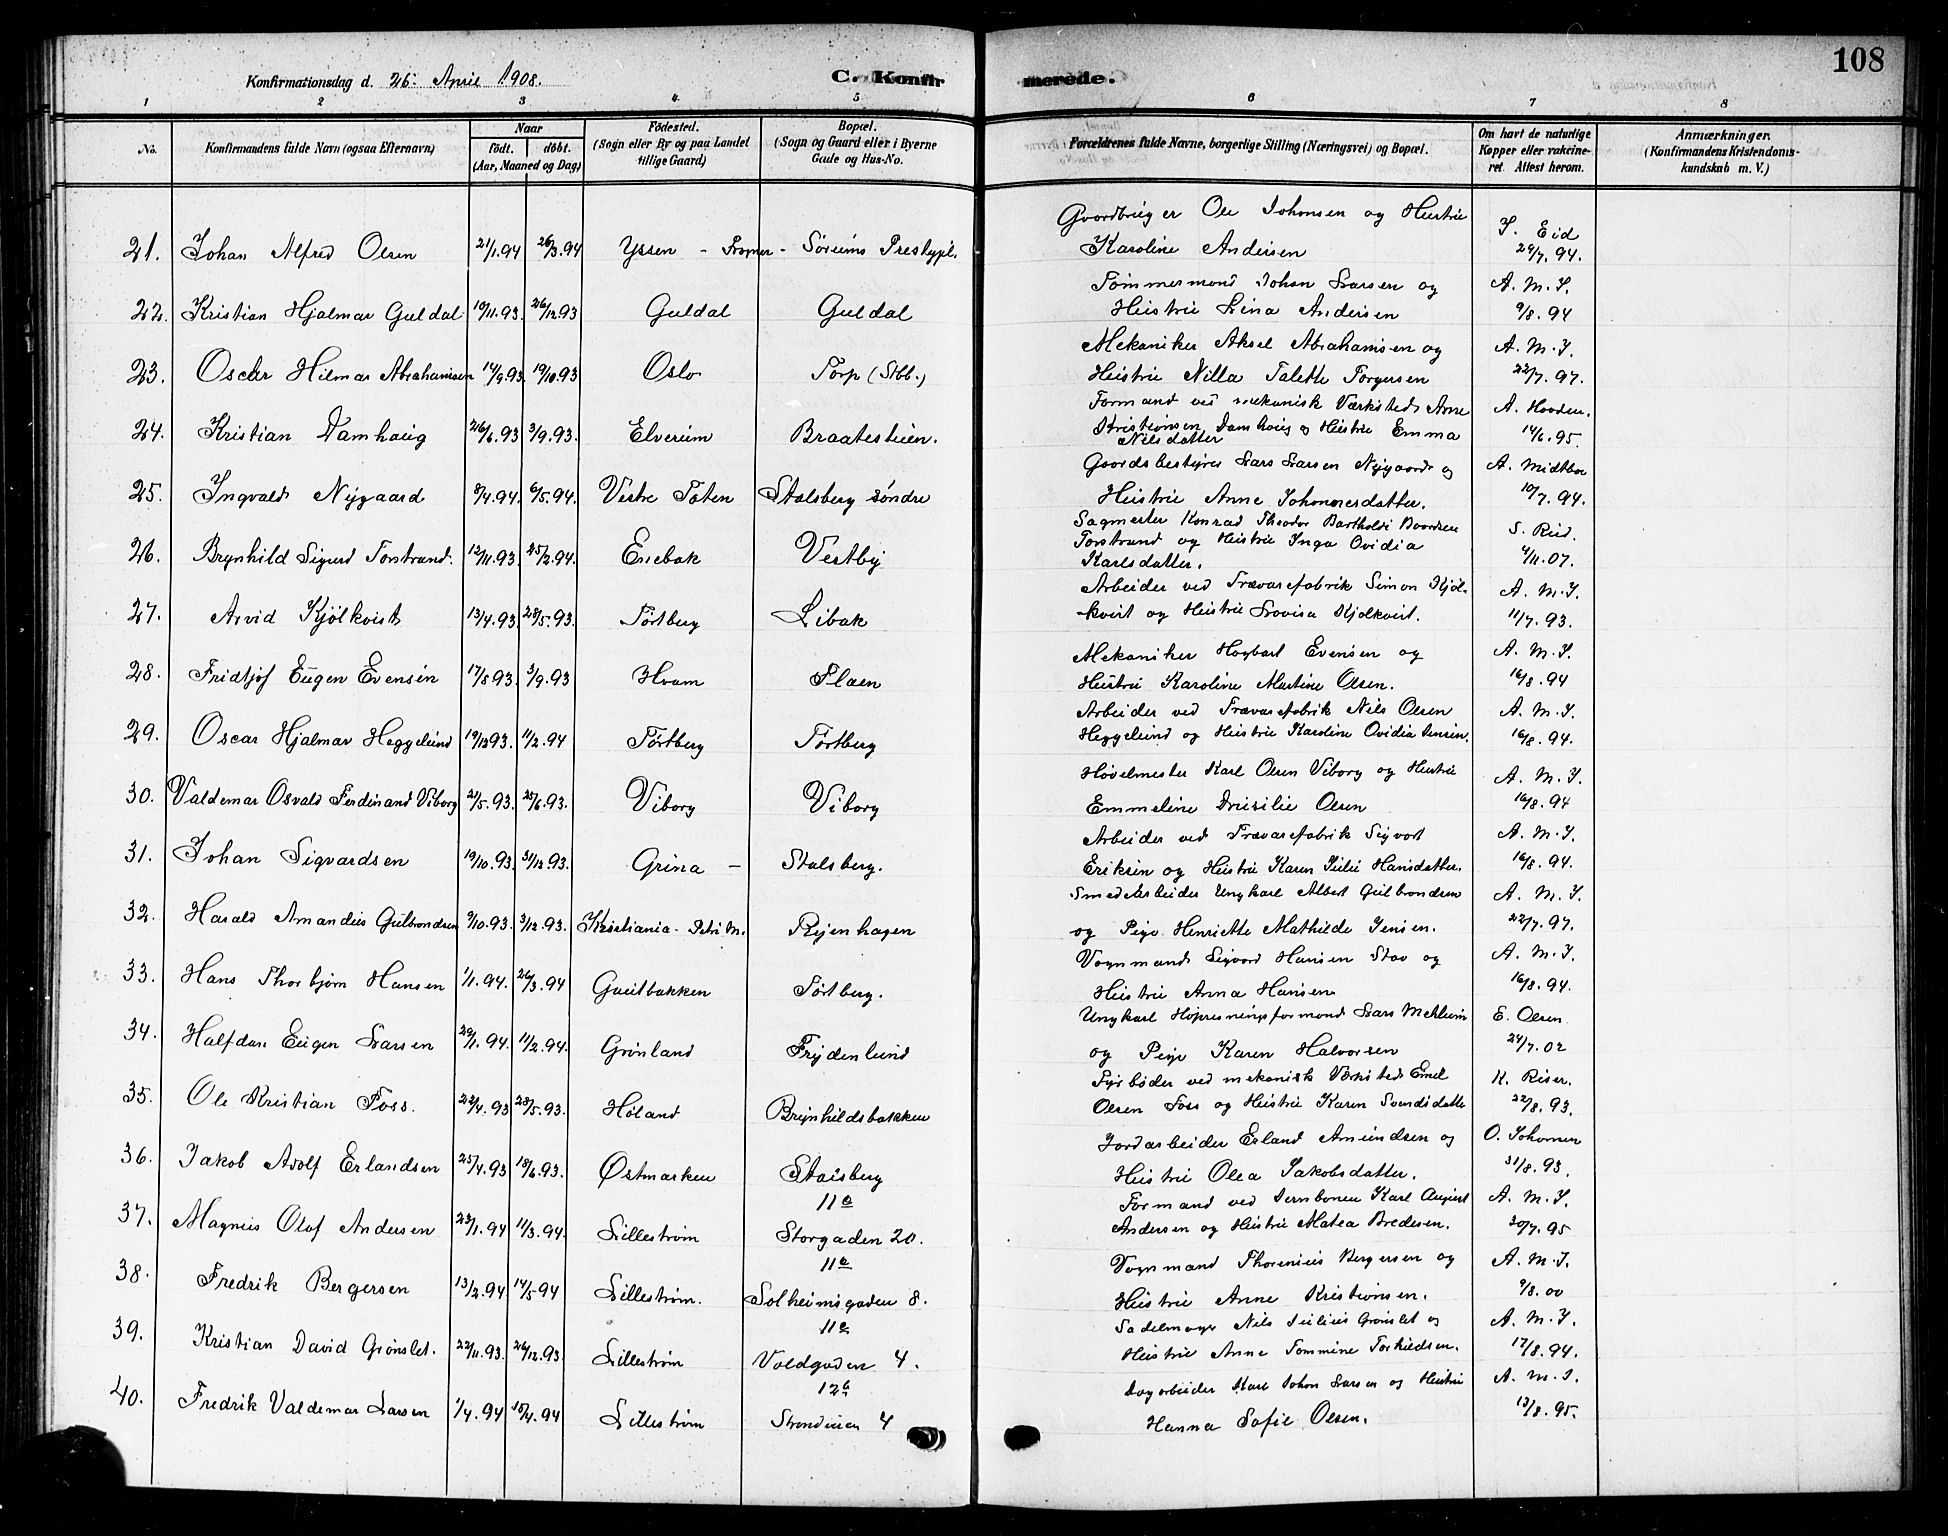 108
Konfirmationsdag d. 26. April 1908. C. Konfirmerede.
1 2 3 4 5 6 7 8
No. Konfirmandens fulde Navn (ogsaa Efternavn) Naar født. døbt. (Aar, Maaned og Dag) Fødested. (Sogn eller By og paa Landet tillige Gaard) Bopæl. (Sogn og Gaard eller i Byerne Gade og Hus-No. Forældrenes fulde Navne, borgerlige Stilling (Næringsvei) og Bopæl. Om havt de naturlige Kopper eller vakcineret. Attest herom. Anmærkninger. (Konfirmandens Kristendomskundskab m. V.)
21. Johan Alfred Olsen 21/1.94 26/3.94 Yssen - Fogner - Sørums Prestegjl. Gaardbruger Ole Johansen og Hustru Karoline Andersen Eid 24/7.94.
22. Kristian Hjalmar Guldal 10/11.93. 26/12.93 Guldal Guldal Tømmermand Johan Larsen og Hustru Lina Andersen A. M. J. 9/8.94
23. Oscar Hilmar Abrahamsen 14/9.93. 19/10.93 Oslo Torp (Stbb.) Mekaniker Aksel Abrahamsen og Hustru Nilla Talette Torgersen A. M. J. 22/7.97.
24. Kristian Damhaug 26/6.93 3/9.93. Elverum Braatestuen. Formand ved mekanisk Værksted Arne Kristiansen Damhaug og Hustru Emma Nilsdatter A. Hooden. 14/6.95.
25. Ingvald Nygaard 8/4.94. 6/5.94. Vestre Toten Stalsberg søndre Gaardsbestyrer Lars Larsen Nygaard og Hustru Anne Johannesdatter. A. Midtboe 10/7.94.
26. Brynhild Sigurd Torstrand. 12/11.93. 25/2.94. Enebak Vestby Sagmester Konrad Theodor Bartholdi Torstrand og Hustru Inga Ovidia Karlsdatter. S. Rud. 4/11.07.
27. Arvid Kjölkvist 13/4.93 28/5.93. Törtberg Libak Arbeider ved Trævarefabrik Simon Kjöl-kvist og Hustru Lovisa Kjölkvist. A. M. J. 11/7.93.
28. Fridtjof Eugen Evensen 17/5.93. 3/9.93 Hvam Flaen Mekaniker Hagbart Evensen og Hustru Karoline Martine Olsen. A. M. J. 16/8.94
29. Oscar Hjalmar Heggelund 19/12 93. 11/2.94 Törtberg Törtberg Arbeider ved Trævarefabrik Nils Olsen Heggelund og Hustru Karoline Ovidia Jensen. A. M. J. 16/8.94.
30. Valdemar Osvald Ferdinand Viborg 21/5.93. 25/6.93. Viborg Viborg Høvelmester Karl Olsen Viborg og Hustru Emmeline Drusilie Olsen A. M. J. 16/8.94
31. Johan Sigvardsen 19/10.93. 31/12.93. Grina - Stalsberg. Arbeider ved Trævarefabrik Sigvart Eriksen og Hustru Karen Julie Hansdatter. A. M. J. 16/8.94.
32. Harald Amandus Gulbrandsen 9/10.93. 3/12.93. Kristiania - Petri M. Rejenhagen Smedarbeider Ungkarl Albert Gulbrandsen og Pige Henriette Mathilde Jensen. A. M. J. 22/7.97.
33. Hans Thorbjørn Hansen 1/1.94. 26/3.94 Gautbakken Törtberg. Vognmand Sigvard Hansen Stav og Hustru Anna Hansen A. M. J. 16/8.94.
34. Halfdan Eugen Larsen 29/1.94. 11/2.94. Grønland Frydenlund Ungkarl Høpresningsformand Lars Mehlum og Pige Karen Halvorsen E. Olsen 24/7.02
35. Ole Kristian Foss. 22/4.93 28/5.93. Høland Brynhildsbakken Fyrbøder ved mekanisk Værksted Emil Olsen Foss og Hustru Karen Svendsdatter K. Riser. 22/8.93.
36. Jakob Adolf Erlandsen 25/4.93 18/6.93. Østmarken Stalsberg Jordarbeider Erland Amundsen og Hustru Olea Jakobsdatter. O. Johansen 31/8.93.
37. Magnus Olaf Andersen 23/1.94. 11/3.94. Lillestrøm 11a Storgaden 20. Formand ved Jernbanen Karl August Andersen og Hustru Matea Bredesen. A. M. J. 30/7.95
38. Fredrik Bergersen 13/2.94 14/5 94 Lillestrøm. 11a Solheimsgaden 8. Vognmand Thorenius Bergersen og Hustru Anne Kristiansen. A. M. J. 9/8.00
39. Kristian David Grønslet. 22/11.93. 26/12.93 Lillestrøm 11a Voldgaden 4. Sadelmager Nils Julius Grønslet og Hustru Anne Tommine Torkildsen. A. M. J. 17/8.94.
40. Fredrik Valdemar Larsen 1/4.94 15/4.94 Lillestrøm 12a Strandveien 4 Dagarbeider Karl Johan Larsen og Hustru Hanna Sofie Olsen. A. M. J. 13/8.95.